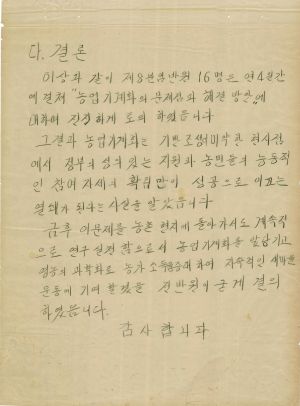 다. 결론
이상과 같이 제8분임반원 16명은 연4일간
에 걸쳐 "농업기계화의 문제점과 해결 방안"에
대하여 진정하게 토의 하였읍니다
그결과 농업기계화는 기반조성이 미약한 현시점
에서 정부의 성의있는 지원과 농민들의 능동적
인 참여 자세의 확립만이 성공으로 이끄는
열쇄가 된다는 사실을 알았읍니다
금후 이문제를 농촌 현지에 돌아가서도 계속적
으로 연구 실천 함으로서 농업기계화를 앞당기고
영농의 과학화로 농가 소득증대 하여 지속적인 새마을
운동에 기여 할것을 전반원이 굳게 결의
하였읍니다.
감사합니다